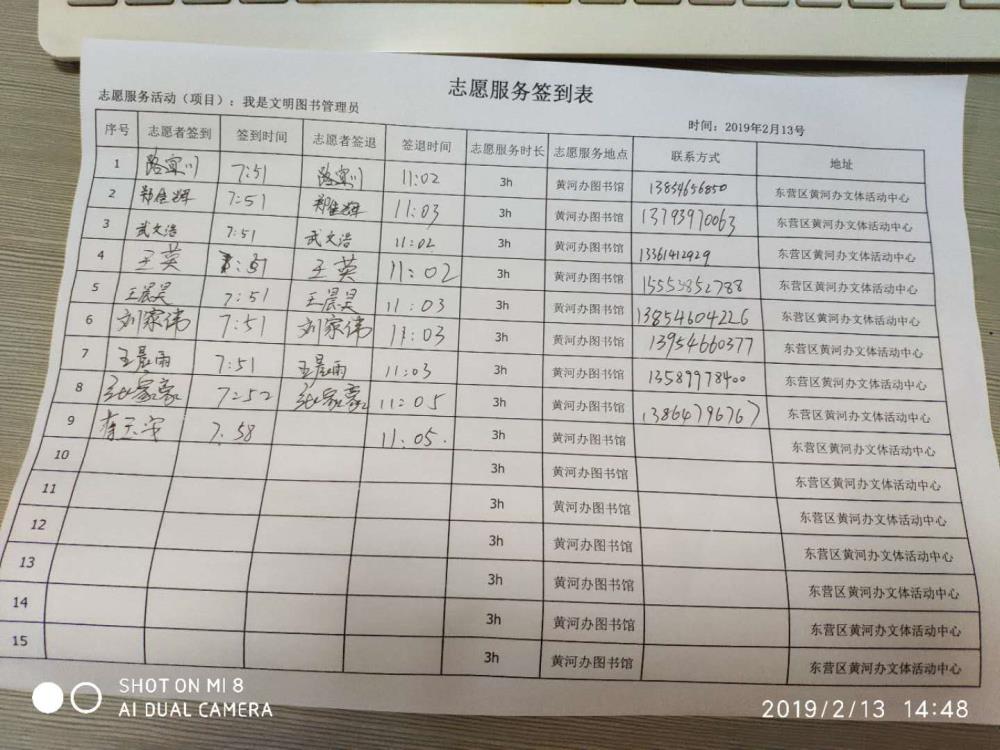 志愿服务签到表
志愿服务活动（项目）：我是文明图书管理员
时间：2019年2月13号
序号 志愿者签到 签到时间 志愿者签退 签退时间 志愿服务时长 志愿服务地点 联系方式 地址
1 7:51 11:02 3h 黄河办图书馆 13854656850 东营区黄河办文体活动中心
2 郑佳辉 7:51 郑佳辉 11:03 3h 黄河办图书馆 13793970063 东营区黄河办文体活动中心
3 武文浩 7:51 武文浩 11:02 3h 黄河办图书馆 13361412929 东营区黄河办文体活动中心
4 王英 7:51 王英 11:02 3h 黄河办图书馆 15553852788 东营区黄河办文体活动中心
5 王晨昊 7:51 王晨昊 11:03 3h 黄河办图书馆 13854604226 东营区黄河办文体活动中心
6 刘家伟 7:51 刘家伟 11:03 3h 黄河办图书馆 13954660377 东营区黄河办文体活动中心
7 王晨雨 7:51 王晨雨 11:03 3h 黄河办图书馆 13589978400 东营区黄河办文体活动中心
8 张家豪 7:52 张家豪 11:05 3h 黄河办图书馆 13864796767 东营区黄河办文体活动中心
9 7:58 11:05. 3h 黄河办图书馆 东营区黄河办文体活动中心
10 3h 黄河办图书馆 东营区黄河办文体活动中心
11 3h 黄河办图书馆 东营区黄河办文体活动中心
12 3h 黄河办图书馆 东营区黄河办文体活动中心
13 3h 黄河办图书馆 东营区黄河办文体活动中心
14 3h 黄河办图书馆 东营区黄河办文体活动中心
15 3h 黄河办图书馆 东营区黄河办文体活动中心
SHOT ON MI 8
AI DUAL CAMERA
2019/2/13 14:48